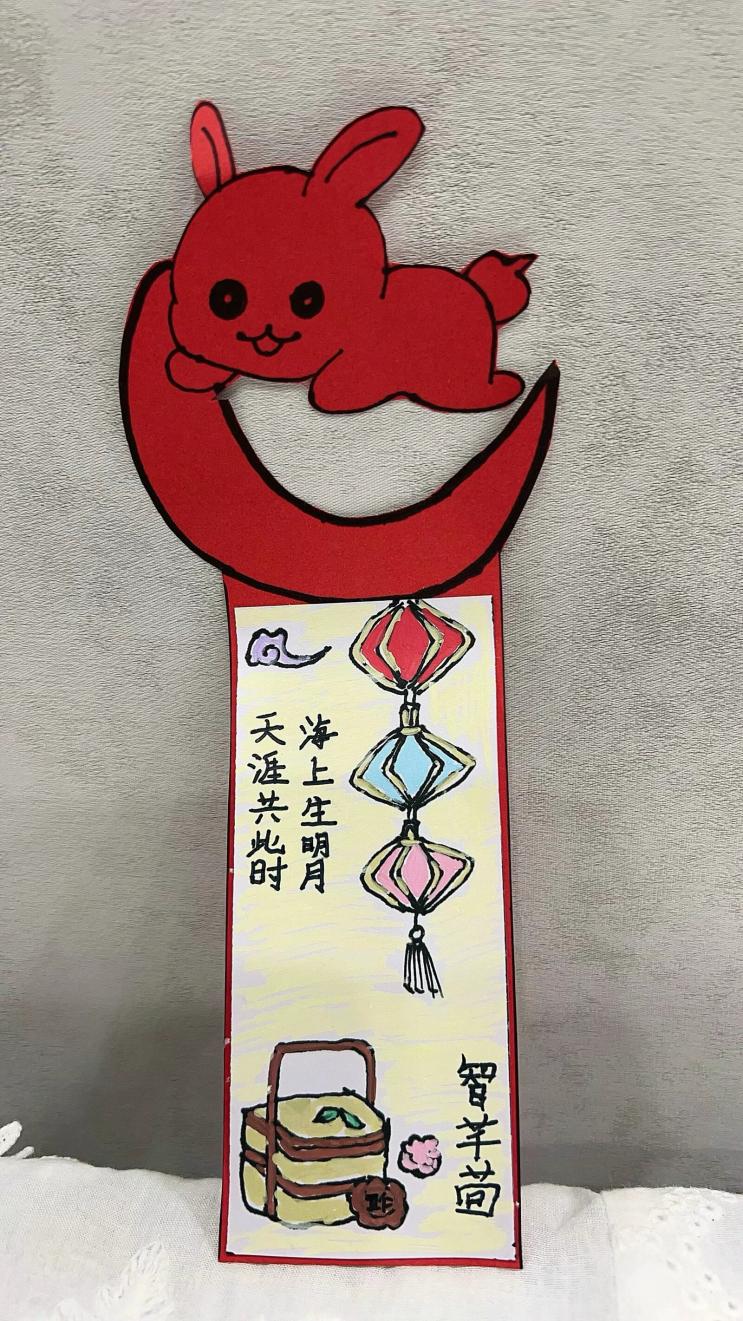 海上生明月
天涯共此时
智芊